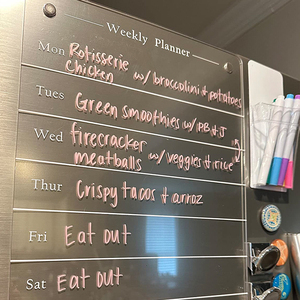 Weekly Planner
Mon Rotisserie w/ broccolini + potatoes
chicken
Tues Green smoothies w/ PB + J
Wed firecracker
meatballs w/ veggies + rice
Thur Crispy tacos + arroz
Fri Eat out
Sat Eat out